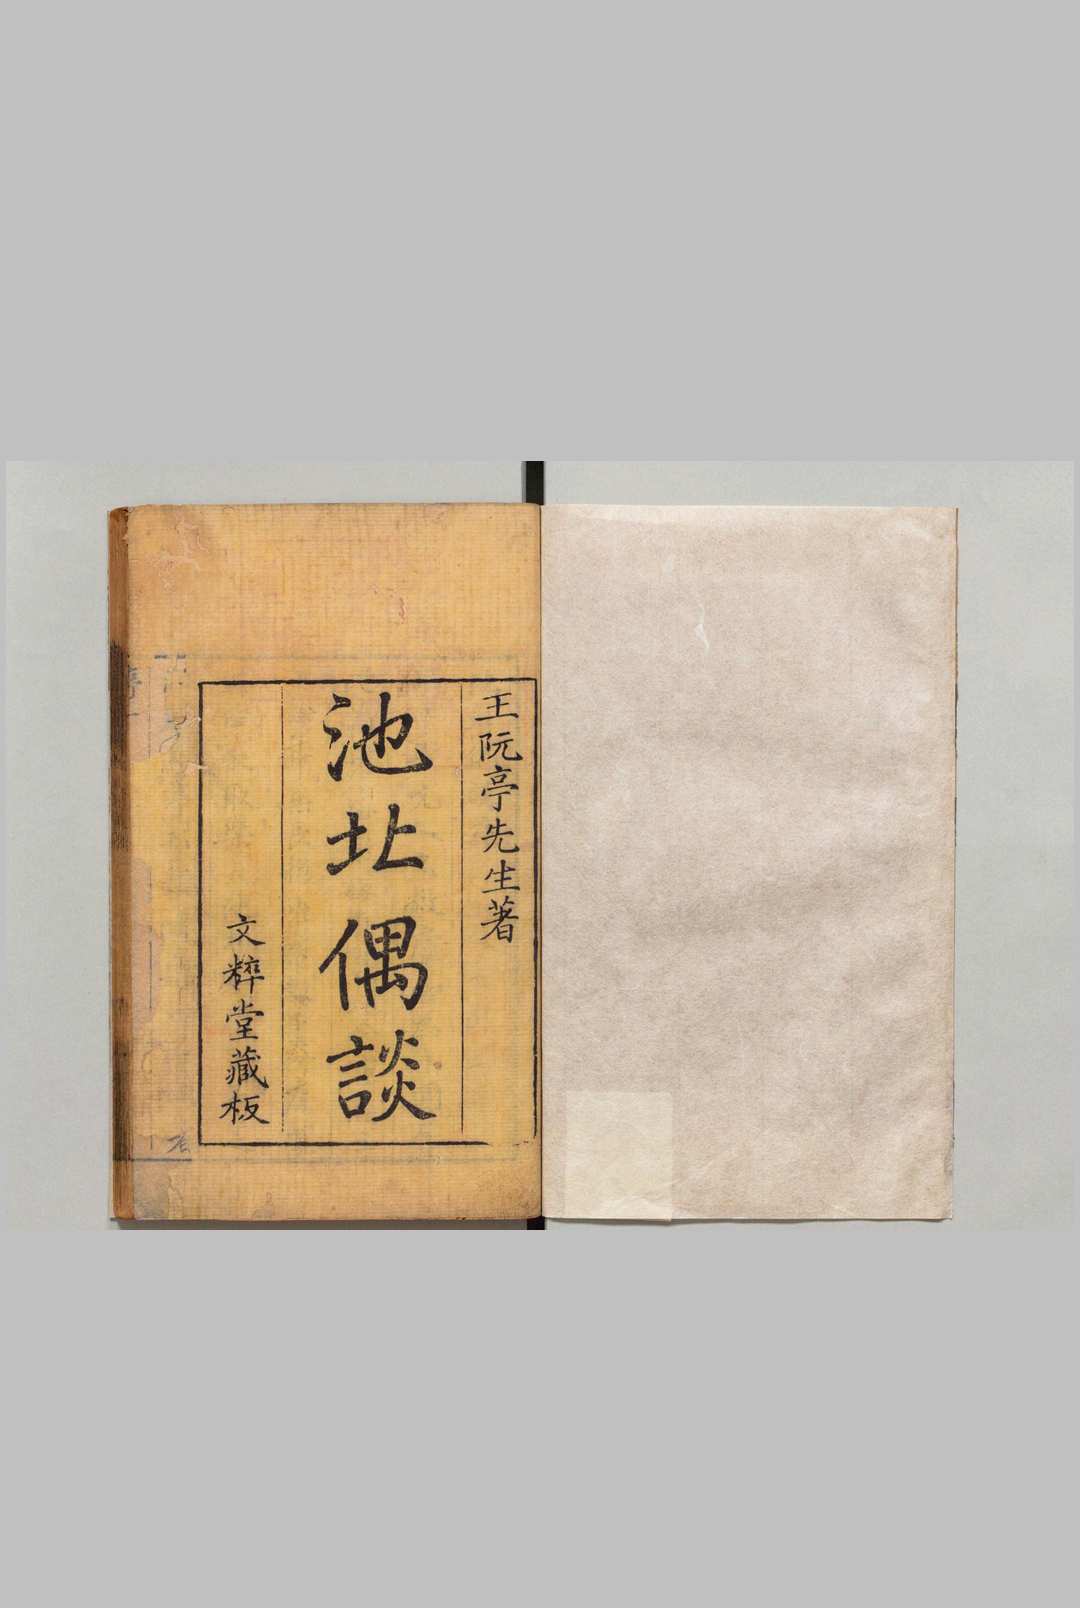 王阮亭先生著
池北偶談
文粹堂藏板